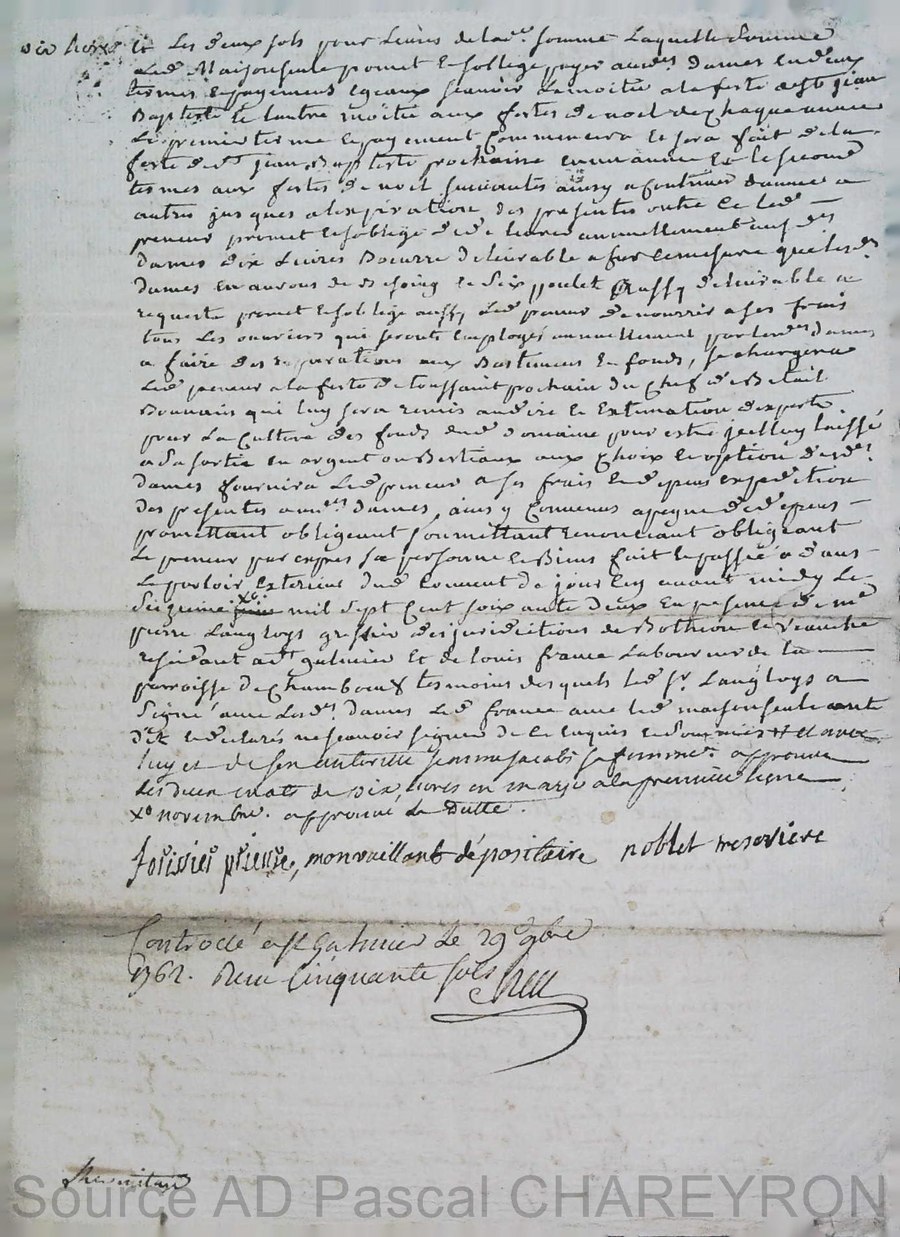 six livres et les deux sols pour livres de lad. somme laquelle somme
led. Maisonseule promet et soblige payer ausd. dames en deux
termes et payements egeaux scavoir la moitié a la feste de st jean
Baptiste et lautre moitié aux festes de noel de chaque année
le premier terme et payement commencera et sera fait de la
feste de st jean Baptiste prochaine en un année et le second
termes aux festes de noel suivantes ainsy a continuer dannée a
autres jusques a lexpiration des presentes outre ce led.
preneur promet et soblige de livrer annuellement ausd.
dames dix livres Beurre delivrable a fur et mesure que lesd.
dames en auront de Besoing et six poulet aussy delivrable a
requeste promet et soblige aussy led. preneur de nourrir a ses frais
tous les ouvriers qui seronts employés annuellement par lesd. dames
a faire des reparations aux Bastimens et fonds, se chargera
led. preneur a la feste de toussaint prochain du chef de Betail
qui luy sera remis a dire et Extimation dexperts
pour la culture des fonds dud. domaine pour estre par luy laissé
a sa sortie en argent ou Bestiaux aux choix et option desd.
dames fournira led. preneur a ses frais et depens expedition
des presentes auxd. dames, ainsy convenus a peyne de depens
promettant obligeant soumettant renonçant obligeant
le preneur par exprès sa personne et Biens fait et passé a
le parloir exterieur dud. couvent le jour avant midy le
seizieme xbre mil sept cent soixante deux en presence de me
pierre Langloys greffier des juridictions de Botheon et veauche
residant a st galmier et de louis france Laboureur de la
parroisse de Chambœuf tesmoins desquels led. sr. Langloys a
signé avec lesd. dames led. france avec led. maisonseule ont
dit et declarés ne scavoir signer de ce enquis et sommés et avec
luy et de son autorité jacob sa femme. approuvé
les deux mots de six livres en marge a la premiere ligne
xe novembre. approuvé la datte.
forissier prieure, monvaillant dépositaire noblet tresoriere
Controllé a st Galmier le 29e 9bre
1762. Reçu cinquante sols
Source AD Pascal CHAREYRON